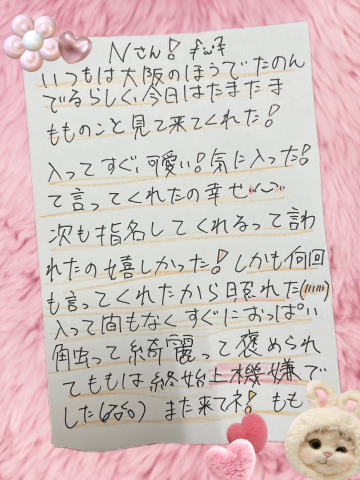 Nさん!
いつもは大阪のほうでたのん
でるらしく、今日はたまたま
もものこと見て来てくれた!
入ってすぐ、可愛い!気に入った!
て言ってくれたの幸せ
次も指名してくれるって言わ
れたの嬉しかった!しかも何回
も言ってくれたから照れた(////)
入って間もなくすぐにおっぱい
触って綺麗って褒められ
てももは終始上機嫌で
した また来てネ! もも